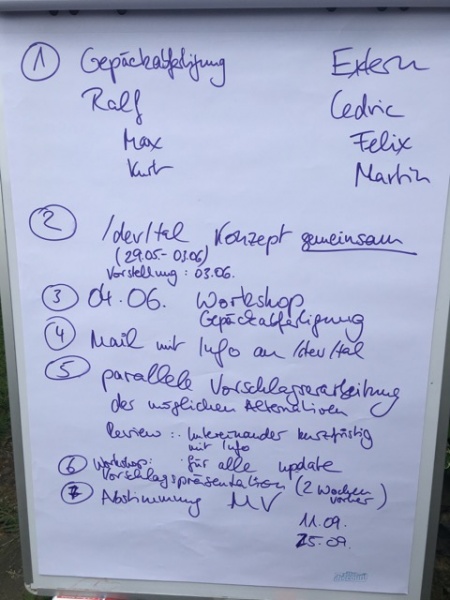 ① Gepäckabfertigung Extern
Ralf Cedric
Max Felix
Kurt Martin
② /dev/tal Konzept gemeinsam
(29.05-03.06)
Vorstellung: 03.06.
③ 04.06. Workshop
Gepäckabfertigung
④ Mail mit Info an /dev/tal
⑤ parallele Vorschlagserarbeitung
der möglichen Alternativen
Review: Untereinander kurzfristig
mit Info
⑥ Workshop: für alle update
Vorschlagspräsentation (2 Wochen
⑦ Abstimmung MV vorher)
11.09.
25.09.